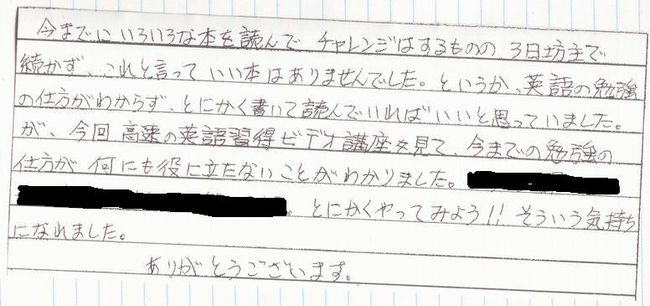 今までにいろいろな本を読んで チャレンジはするものの 3日坊主で
続かず、これと言っていい本はありませんでした。というか、英語の勉強
の仕方がわからず、とにかく書いて読んでいればいいと思っていました。
が、今回 高速の英語習得ビデオ講座を見て、今までの勉強の
仕方が 何にも役に立たないことがわかりました。
とにかくやってみよう!! そういう気持ち
になれました。
ありがとうございます。